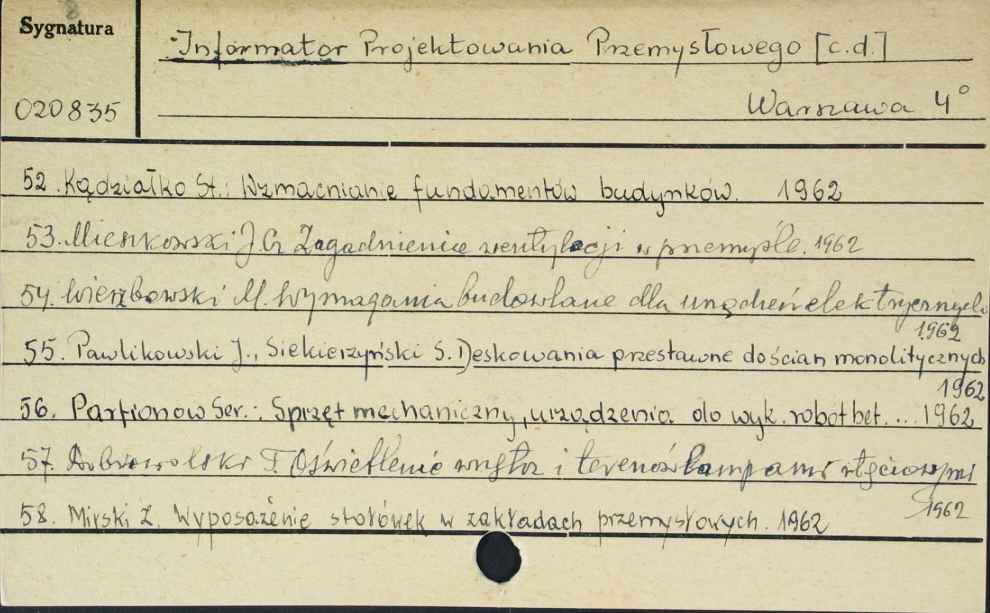 Sygnatura
Informator Projektowania Przemysłowego [c.d.]
020835
Warszawa 4°
52. Kądziałko St.: Wzmacnianie fundamentów budynków. 1962
53. Mieszkowski J. Cz Zagadnienie wentylacji w przemyśle. 1962
54. Wierzbowski M. Wymagania budowlane dla urządzeń elektrycznych
1962
55. Pawlikowski J., Siekierzyński S. Deskowania przestawne do ścian monolitycznych
1962
56. Parfionow Ser.: Sprzęt mechaniczny, urządzenia do wyk. robot bet. ... 1962
57. Dobrowolski T. Oświetlenie wnętrz i terenów lampami rtęciowymi
1962
58. Mirski Z. Wyposażenie stołówek w zakładach przemysłowych. 1962